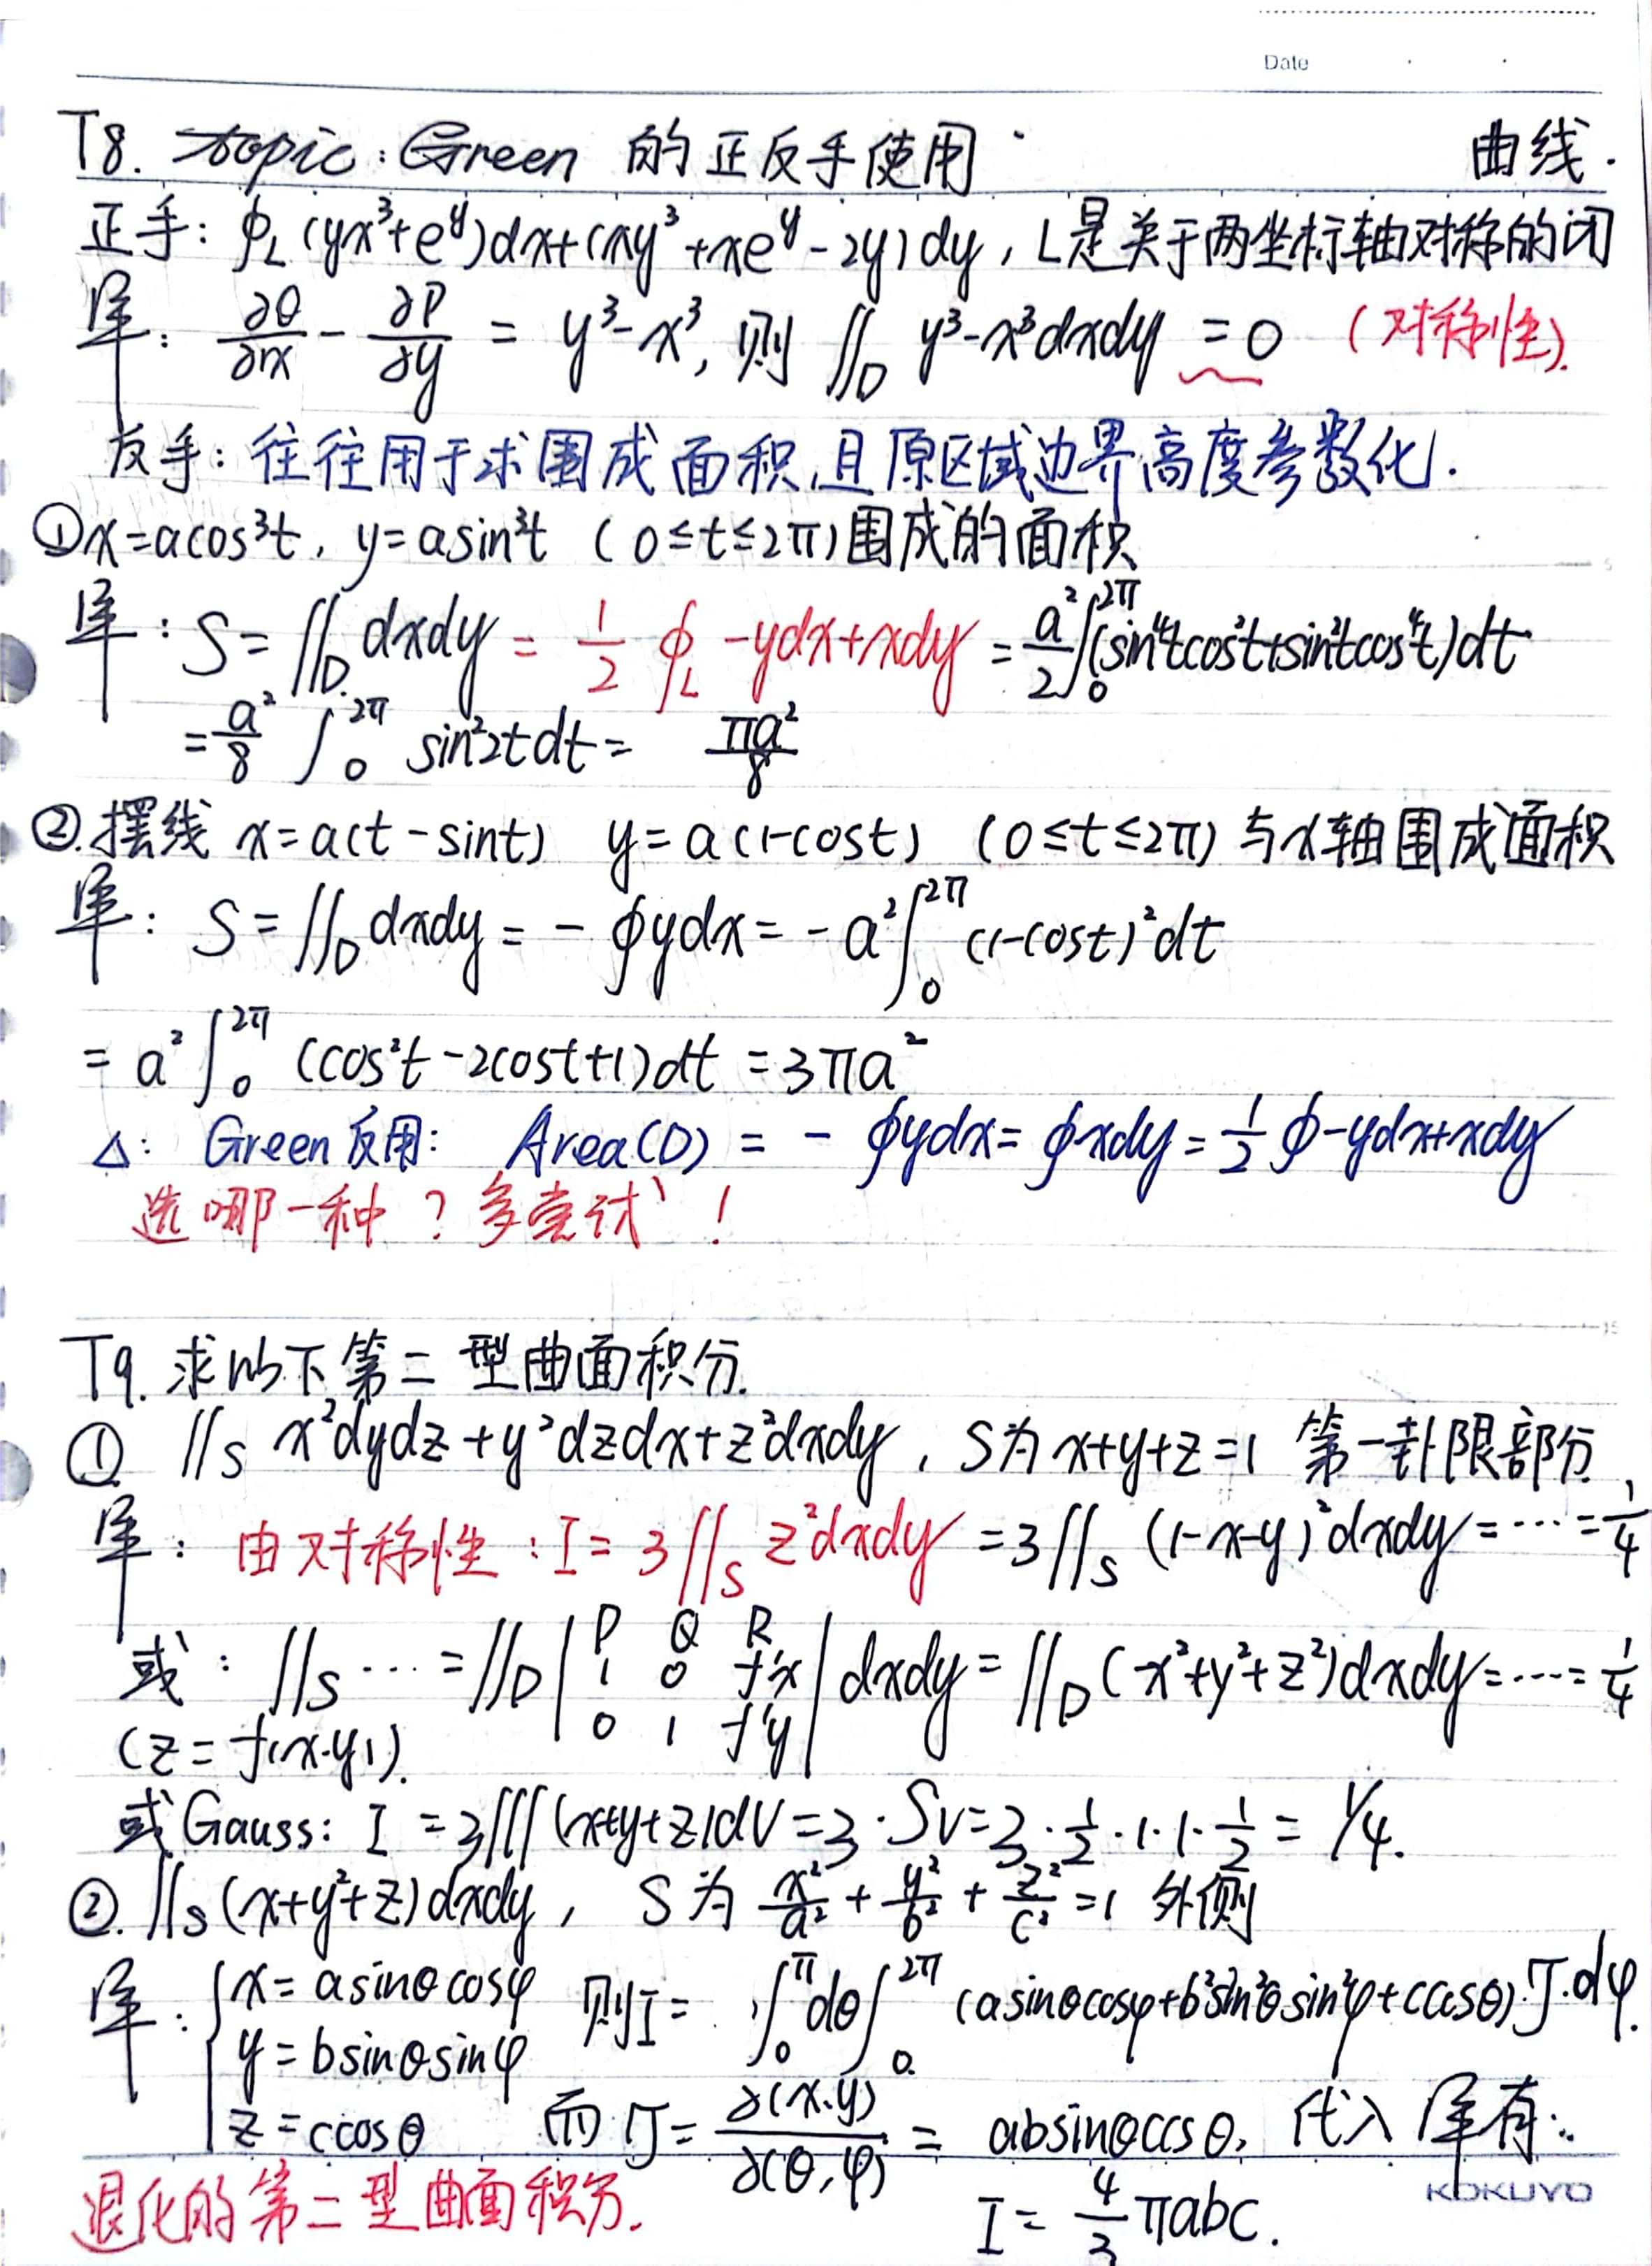 Date
T8. topic: Green 的正反手使用 曲线.
正手: ∮_L (yx³+e^y)dx+(xy³+xe^y-2y)dy, L是关于两坐标轴对称的闭
解: ∂Q/∂x - ∂P/∂y = y³-x³, 则 ∬_D y³-x³dxdy = 0 (对称性).
反手: 往往用于求围成面积,且原区域边界高度参数化.
① x=acos³t, y=asin³t (0≤t≤2π)围成的面积
解: S=∬_D dxdy = 1/2 ∮_L -ydx+xdy = a²/2∫_0^2π(sin⁴tcos²t+sin²tcos⁴t)dt
= a²/8 ∫_0^2π sin²2tdt = πa²/8
②.摆线 x=a(t-sint) y=a(1-cost) (0≤t≤2π) 与x轴围成面积
解: S=∬_D dxdy = -∮ydx = -a²∫_0^2π (1-cost)²dt
= a²∫_0^2π (cos²t-2cost+1)dt = 3πa²
△: Green反用: Area(D) = -∮ydx = ∮xdy = 1/2∮-ydx+xdy
选哪一种? 多尝试!
T9. 求以下第二型曲面积分.
① ∬_S x²dydz+y²dzdx+z²dxdy, S为x+y+z=1 第一卦限部分,
解: 由对称性: I=3∬_S z²dxdy =3∬_S (1-x-y)²dxdy=⋯=1/4
或: ∬_S ⋯ =∬_D |P Q R; 1 0 f'x; 0 1 f'y| dxdy = ∬_D (x²+y²+z²)dxdy=⋯=1/4
(z=f(x.y)).
或Gauss: I =3∭(x+y+z)dV=3·S_V=3·1/2·1·1·1/2= 1/4.
②. ∬_S(x+y²+z)dxdy, S为 x²/a² + y²/b² + z²/c² =1 外侧
解: {x=asinθcosφ 则I= ∫_0^π dθ∫_0^2π (asinθcosφ+b²sin²θsin²φ+ccosθ)·J·dφ.
y=bsinθsinφ
z=ccosθ 而J= ∂(x.y)/∂(θ,φ) = absinθcosθ, 代入解有:
退化的第二型曲面积分. I= 4/3 πabc.
KOKUYO